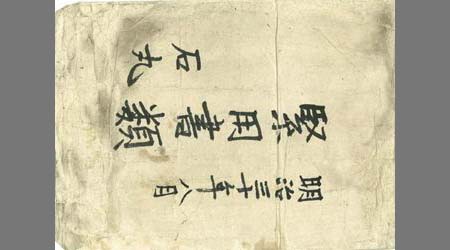 明治三十年八月
緊用書類
石丸